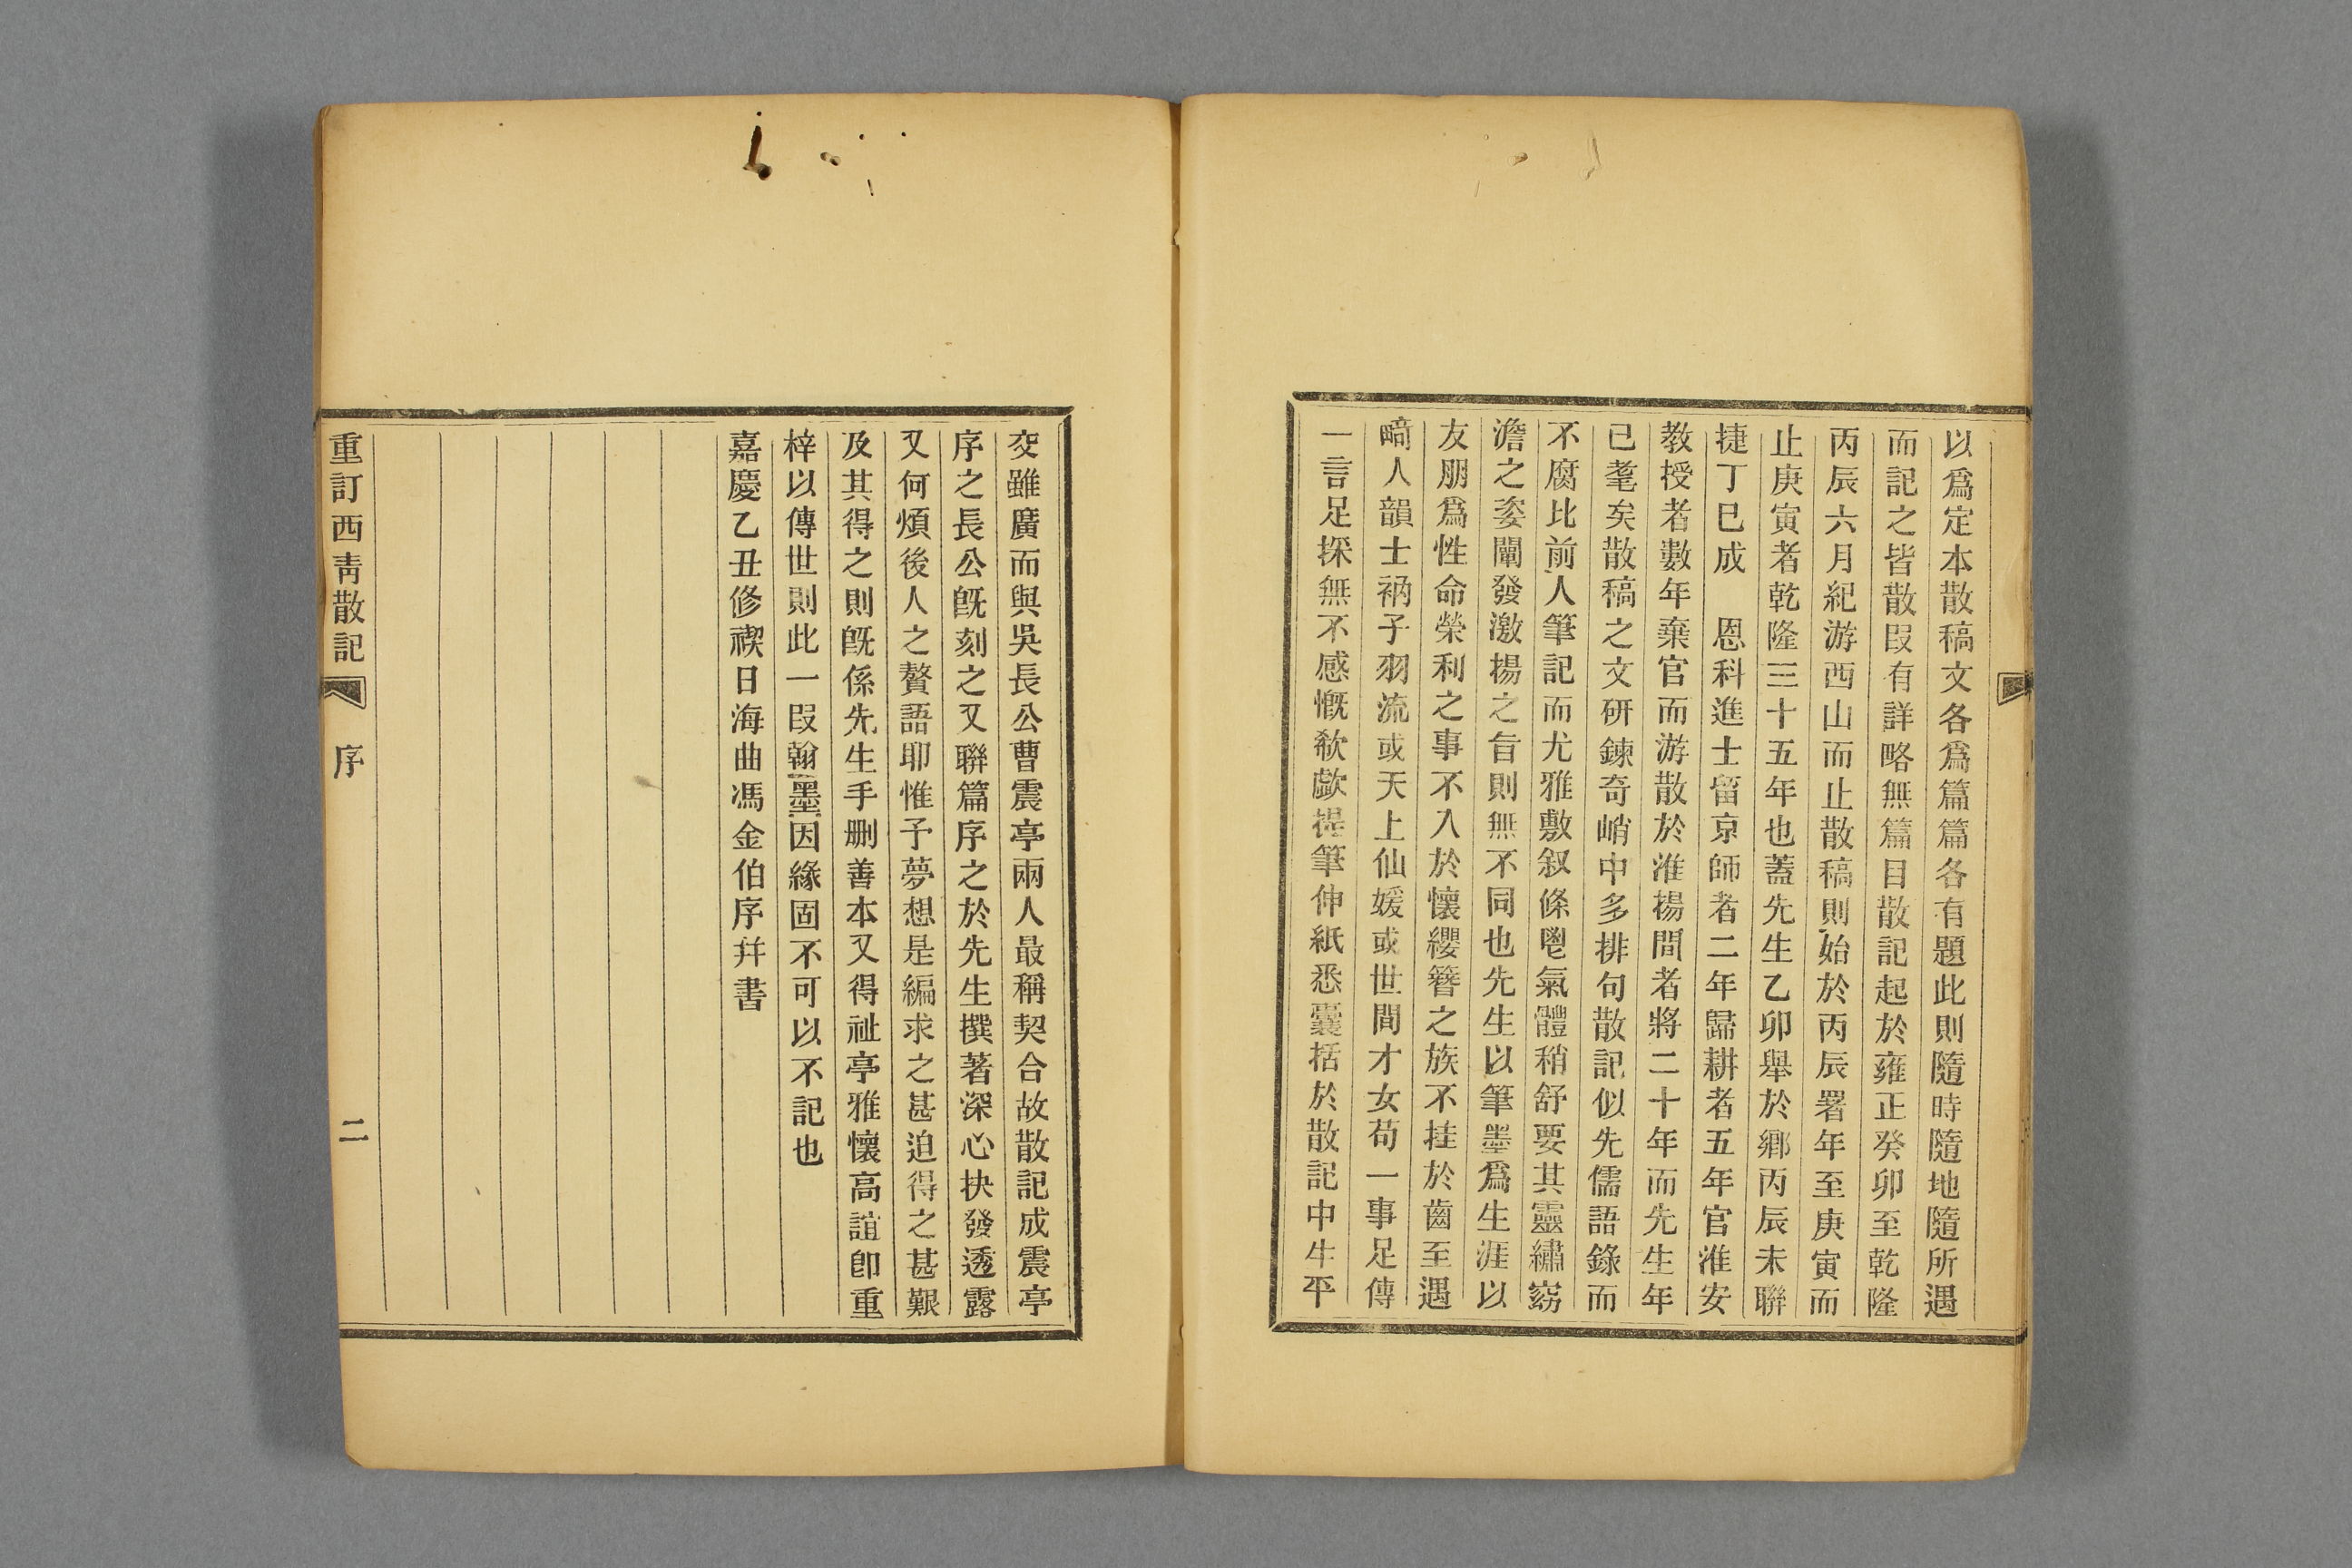 以爲定本散稿文各爲篇篇各有題此則隨時隨地隨所遇
而記之皆散段有詳略無篇目散記起於雍正癸卯至乾隆
丙辰六月紀游西山而止散稿則始於丙辰署年至庚寅而
止庚寅者乾隆三十五年也蓋先生乙卯舉於鄉丙辰未聯
捷丁巳成　恩科進士留京師者二年歸耕者五年官淮安
教授者數年棄官而游散於淮揚間者將二十年而先生年
已耄矣散稿之文研鍊奇峭中多排句散記似先儒語錄而
不腐比前人筆記而尤雅敷叙條鬯氣體稍舒要其靈繡窈
澹之姿闡發激揚之旨則無不同也先生以筆墨爲生涯以
友朋爲性命榮利之事不入於懷纓簪之族不挂於齒至遇
畸人韻士衲子羽流或天上仙媛或世間才女苟一事足傳
一言足採無不感慨欷歔提筆伸紙悉囊括於散記中生平
交雖廣而與吳長公曹震亭兩人最稱契合故散記成震亭
序之長公旣刻之又聯篇序之於先生撰著深心抉發透露
又何煩後人之贅語耶惟予夢想是編求之甚迫得之甚艱
及其得之則旣係先生手刪善本又得祉亭雅懷高誼卽重
梓以傳世則此一段翰墨因緣固不可以不記也
嘉慶乙丑修禊日海曲馮金伯序并書
重訂西靑散記　序　二